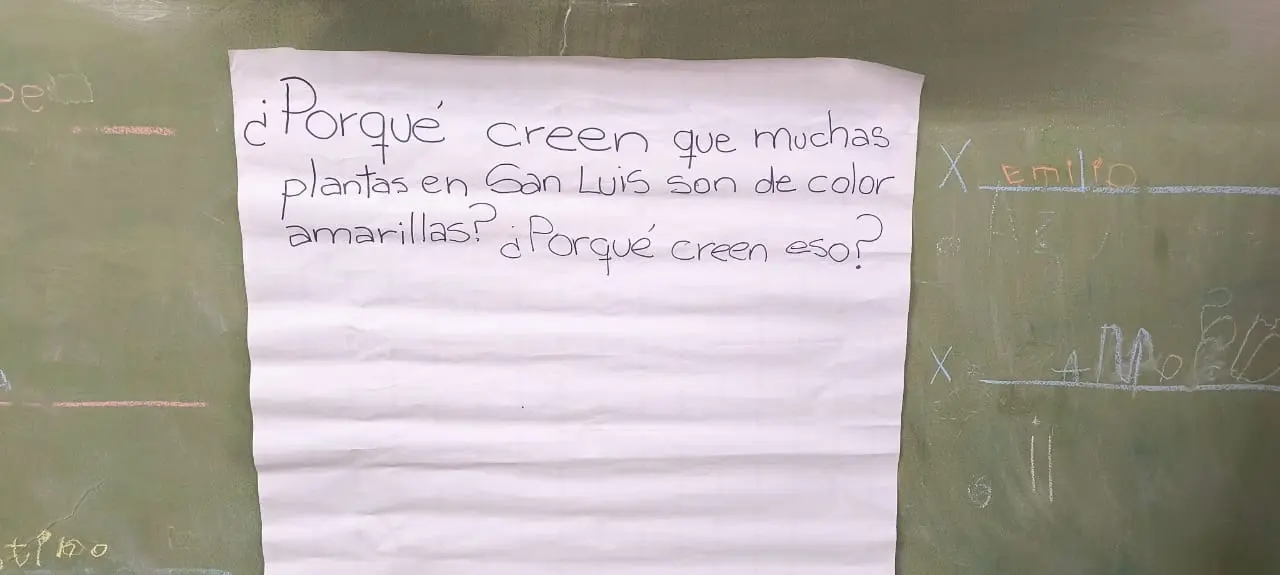 ¿Porqué creen que muchas
plantas en San Luis son de color
amarillas? ¿Porqué creen eso?
X EMILIO
X